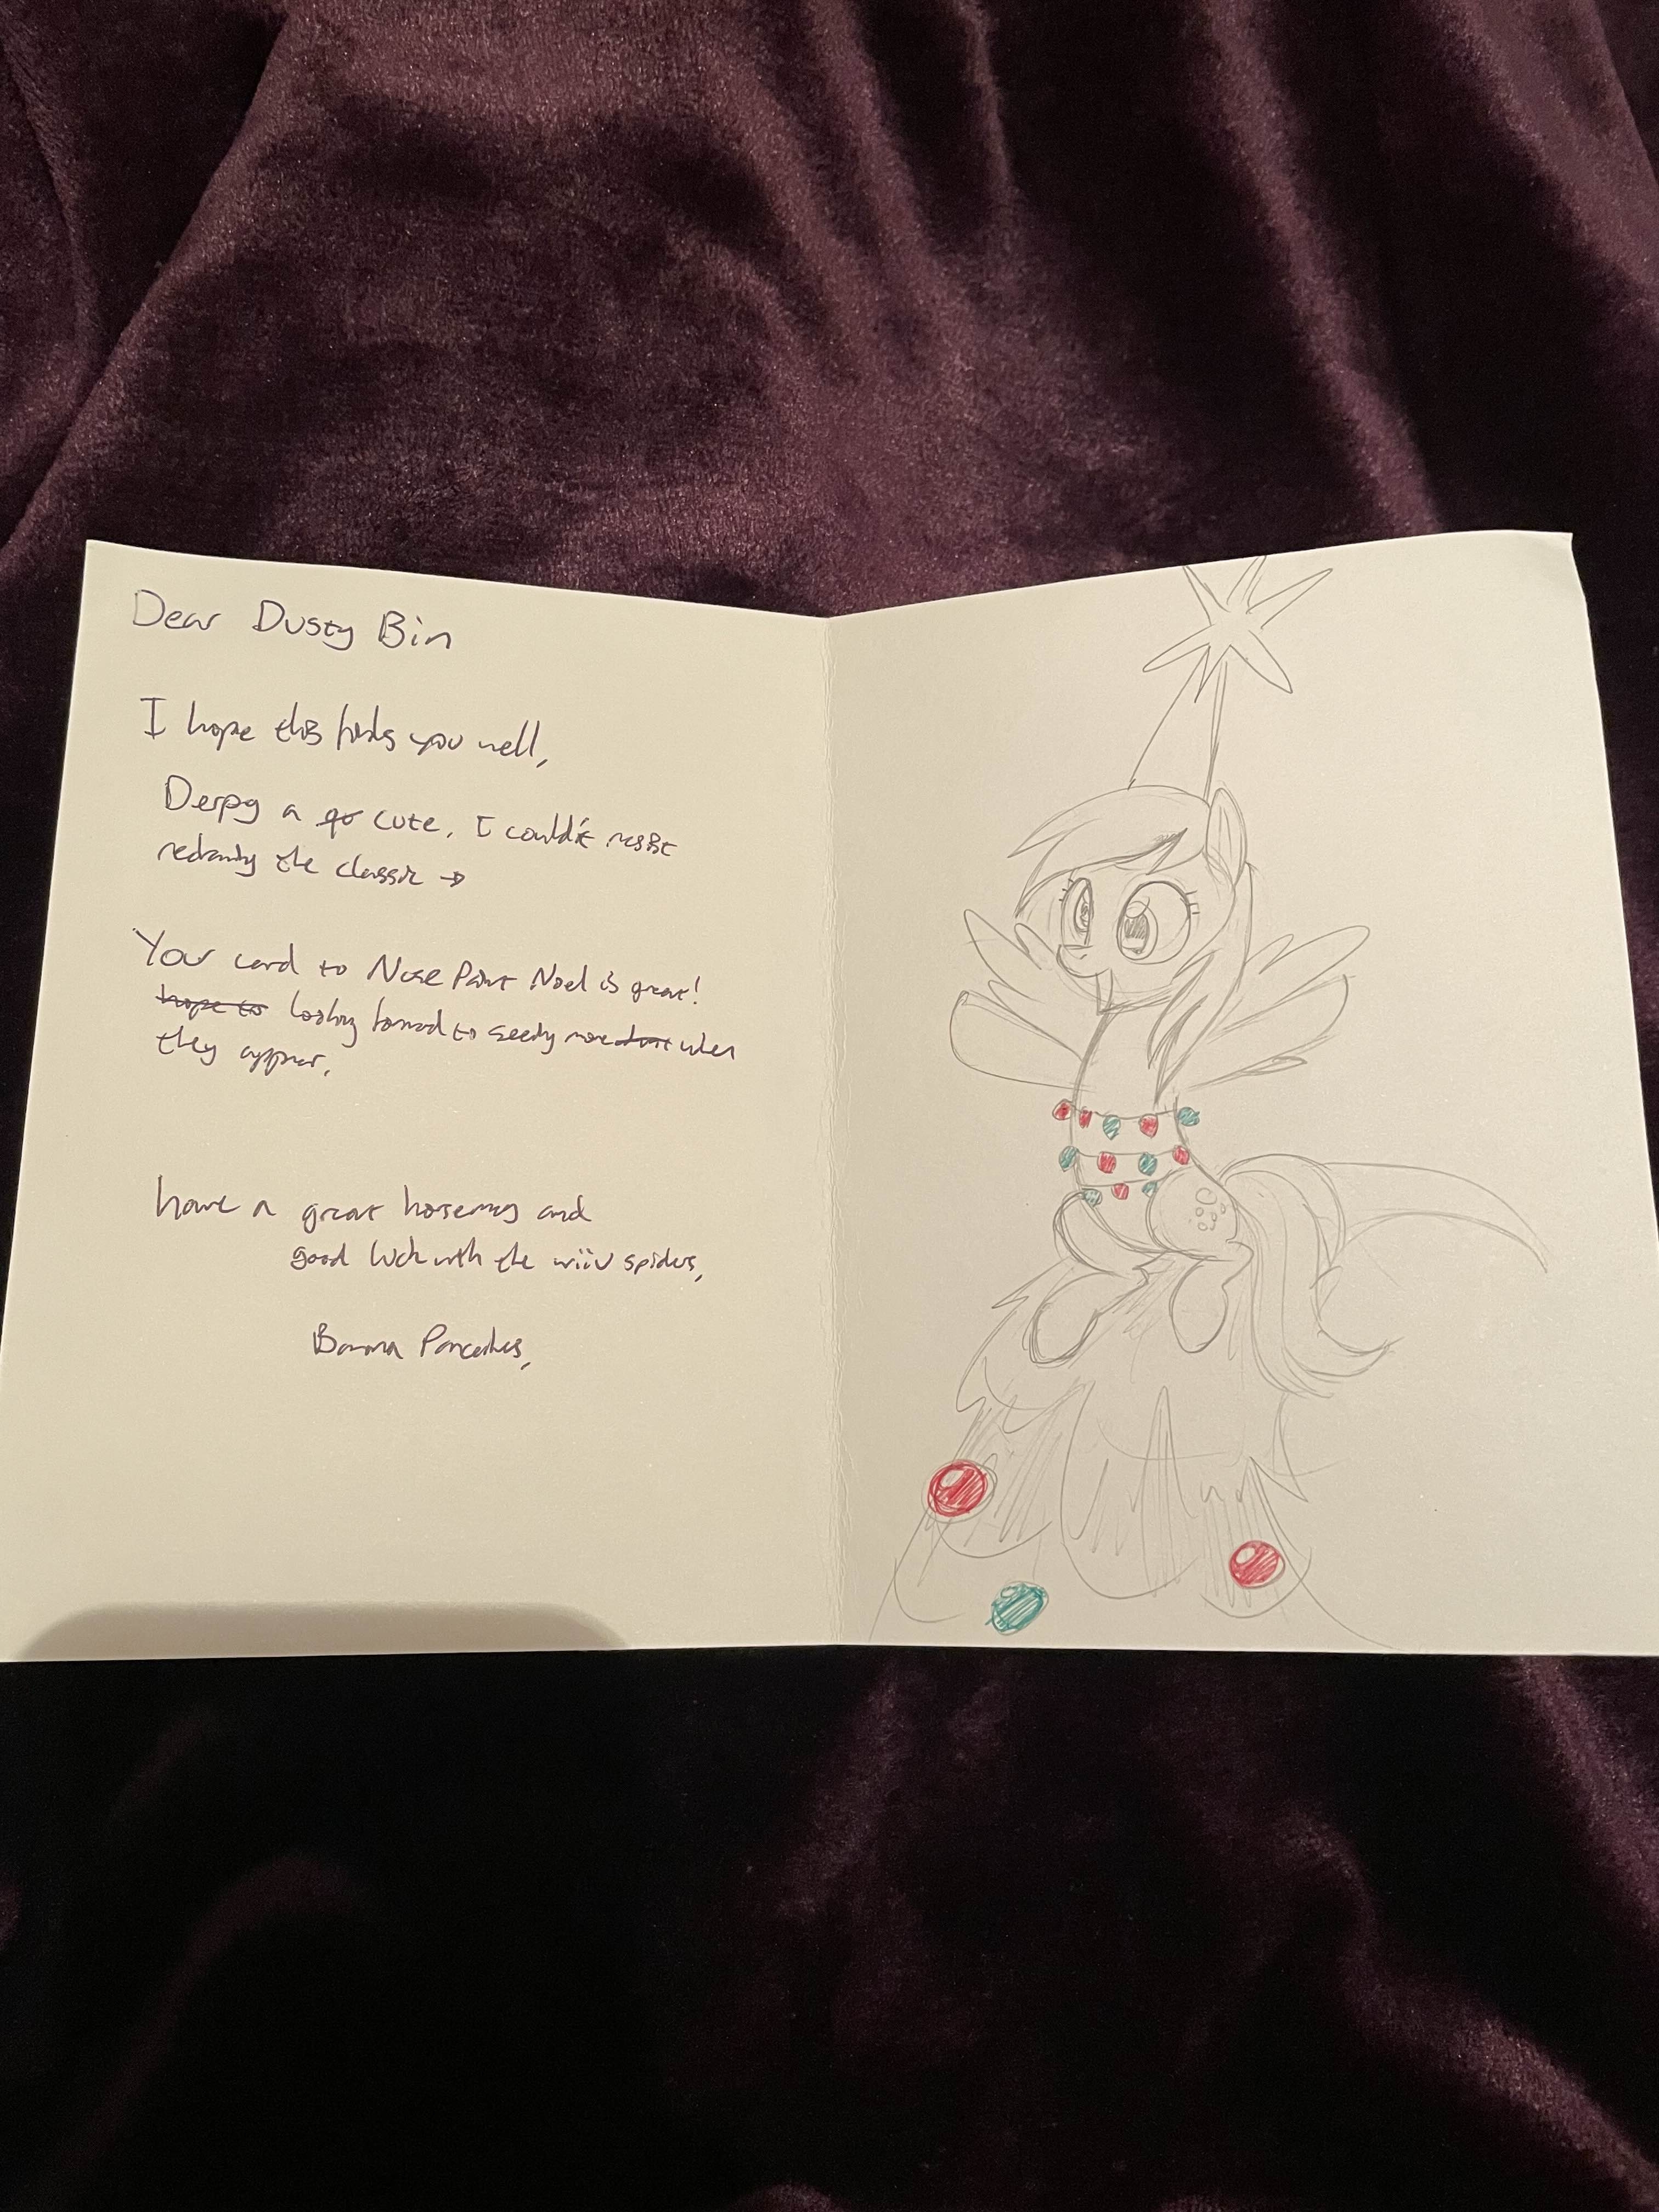 Dear Dusty Bin
I hope this finds you well,
Derpy a cute, I couldn't resist
redrawing the classic →
Your card to Nose Paint Noel is great!
hope to looking forward to seeing more when
they appear,
have a great horsemas and
good luck with the spiders,
Banana Pancakes,